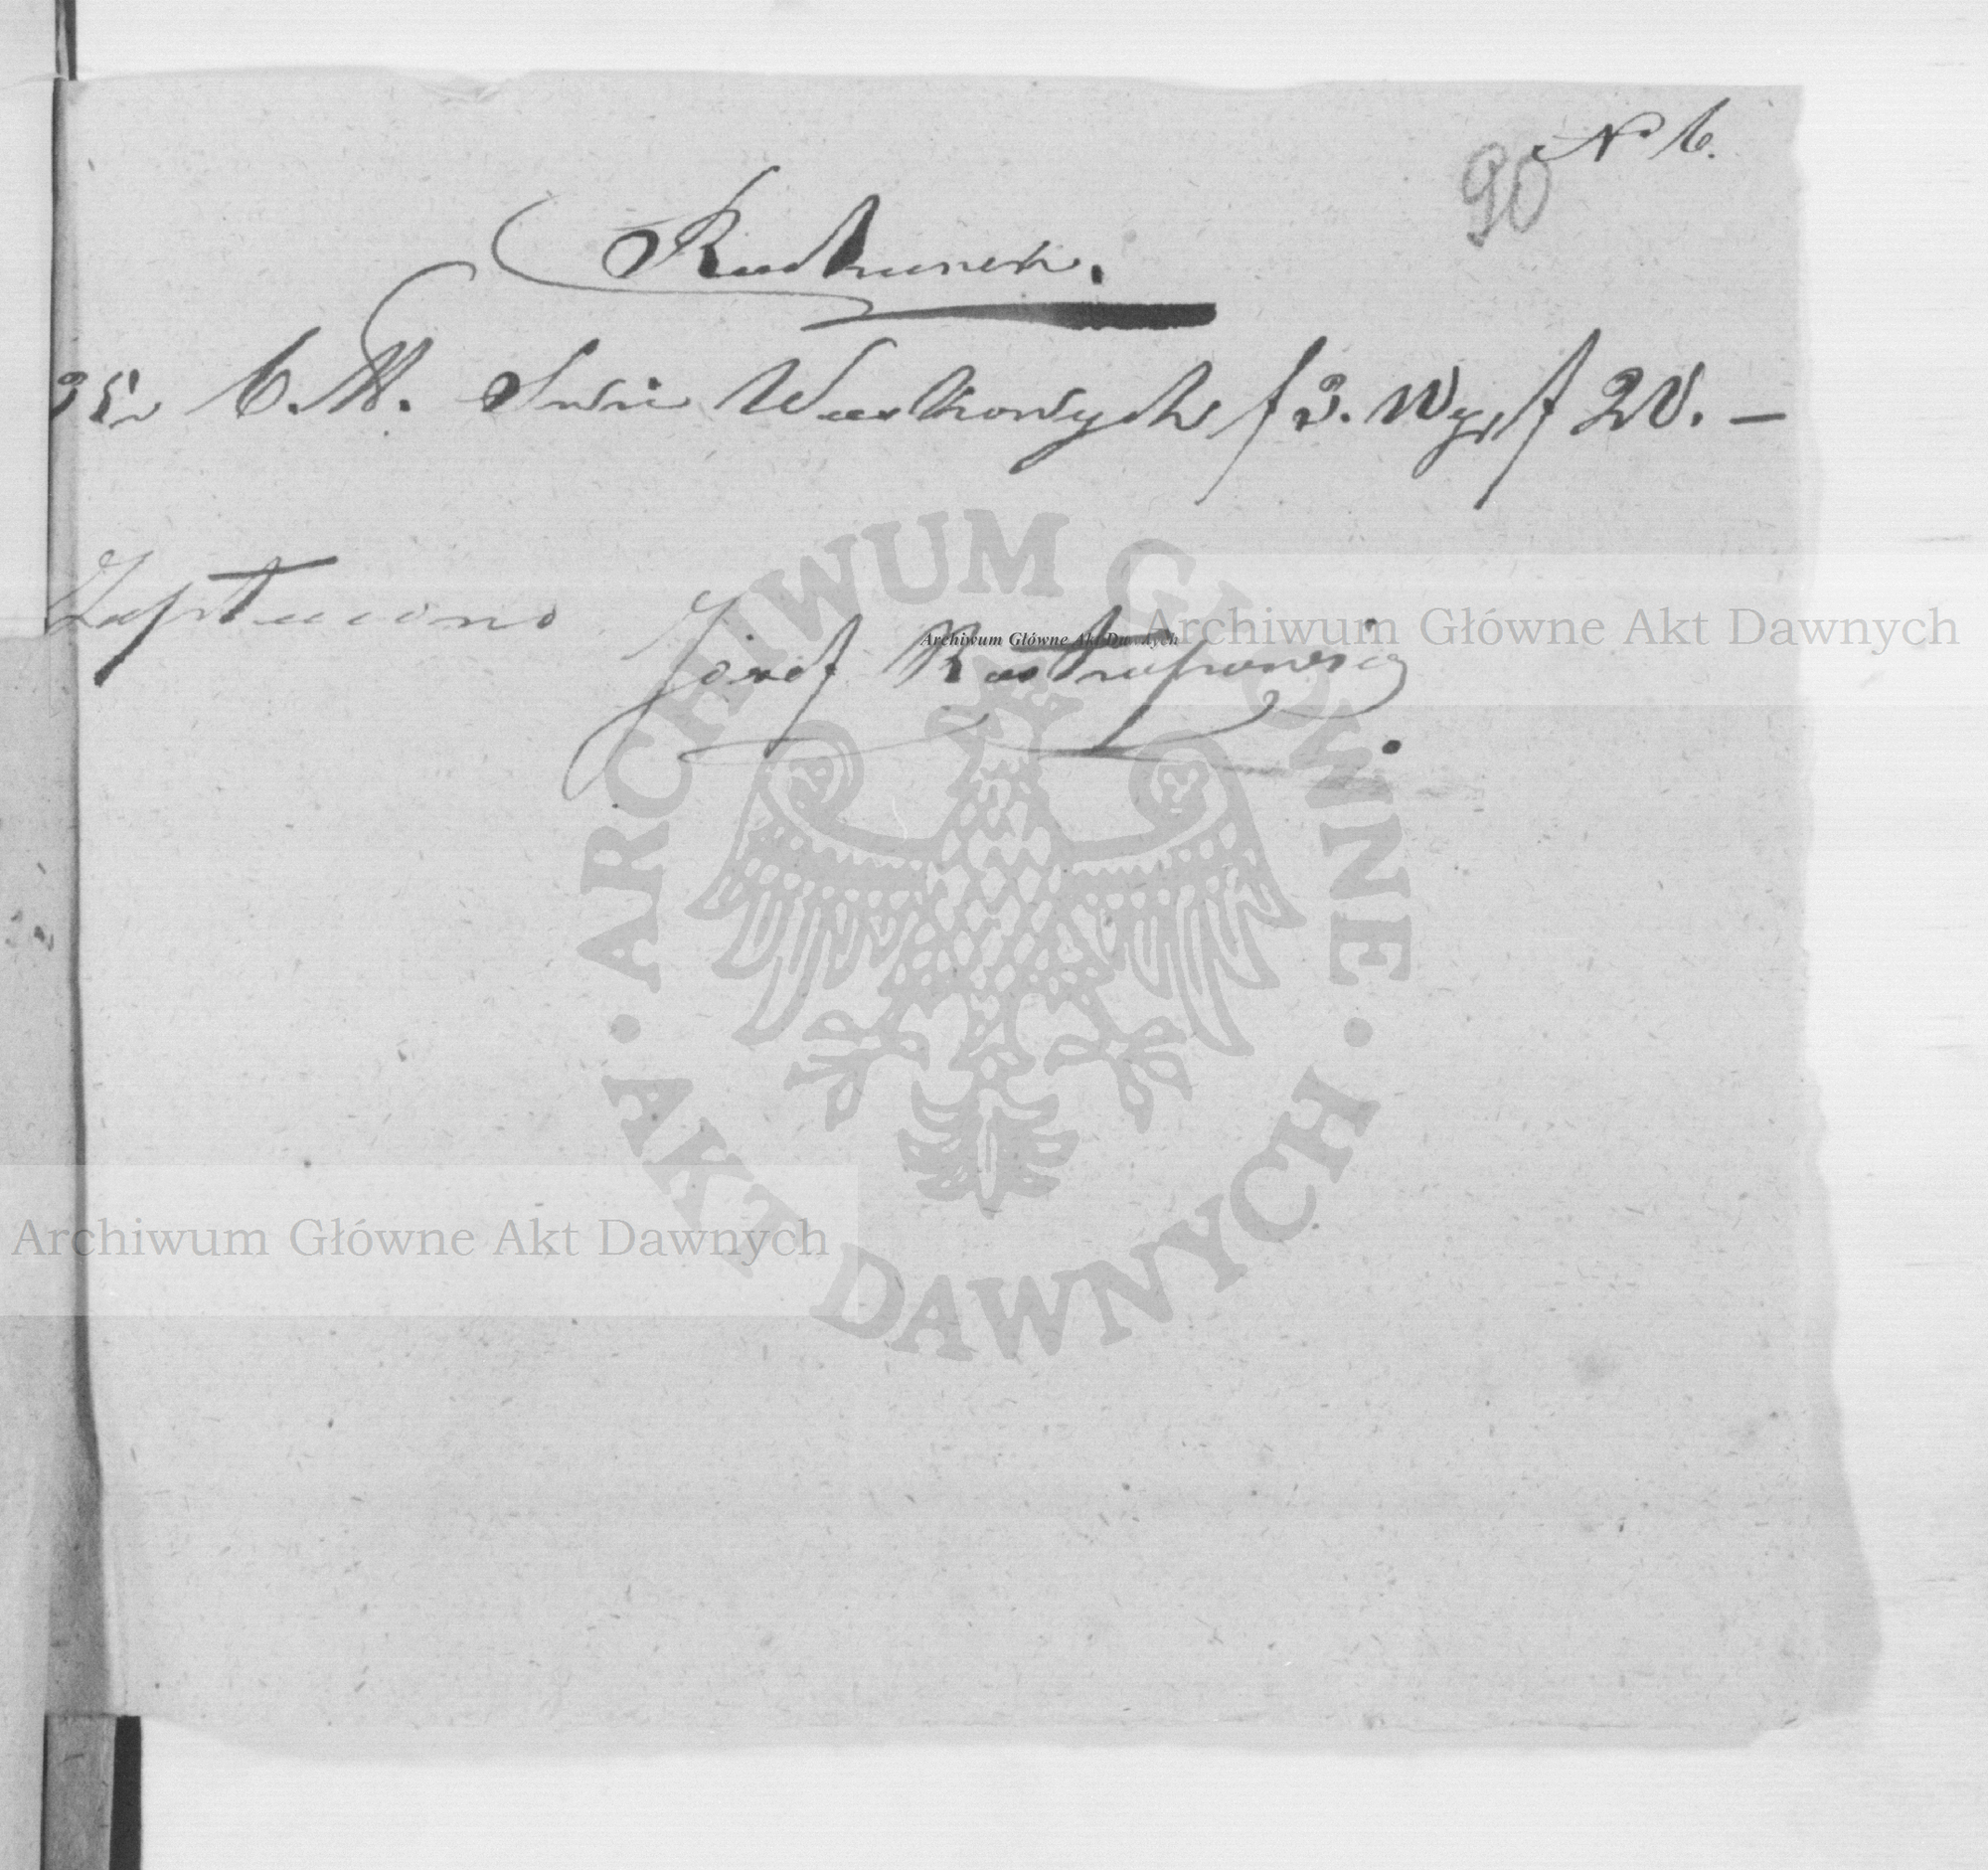 N 6.
90
Rachunek.
Za 6. ℔. Swic Woskowych f 3. Wyr f 20. –
Zapłacono
Józef
Archiwum Główne Akt Dawnych
Archiwum Główne Akt Dawnych
ARCHIWUM GŁÓWNE
AKT DAWNYCH
Archiwum Główne Akt Dawnych